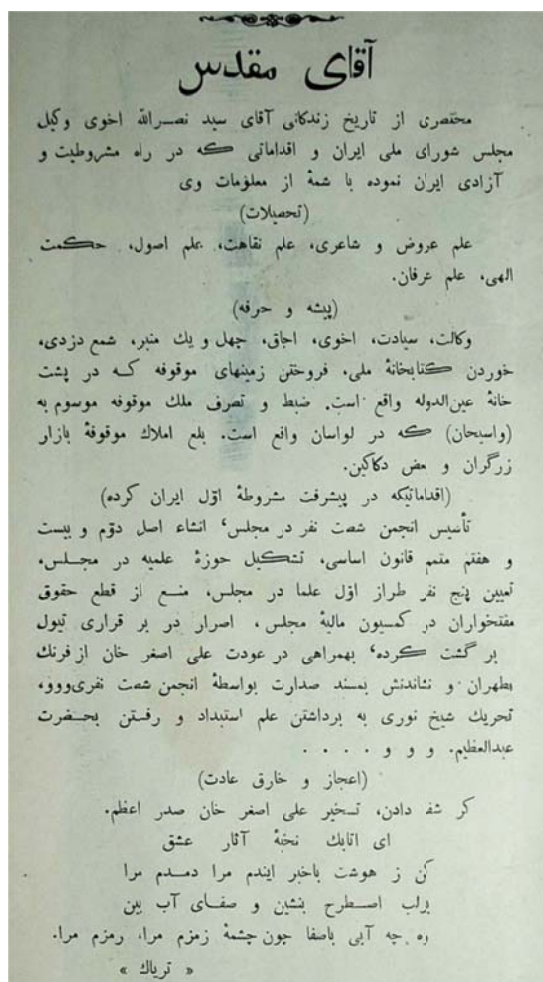 آقای مقدس
مختصری از تاریخ زندگانی آقای سید نصرالله اخوی وکیل
مجلس شورای ملی ایران و اقداماتی که در راه مشروطیت و
آزادی ایران نموده با شمهٔ از معلومات وی
(تحصیلات)
علم عروض و شاعری، علم نقاهت، علم اصول، حکمت
الهی، علم عرفان.
(پیشه و حرفه)
وکالت، سیادت، اخوی، اجاق، چهل و یك منبر، شمع دزدی،
خوردن کتابخانهٔ ملی، فروختن زمینهای موقوفه که در پشت
خانهٔ عین‌الدوله واقع است. ضبط و تصرف ملك موقوفه موسوم به
(واسیجان) که در لواسان واقع است. بلع املاك موقوفهٔ بازار
زرگران و بعض دکاکین.
(اقداماتیکه در پیشرفت مشروطهٔ اوّل ایران کرده)
تأسیس انجمن شصت نفر در مجلس، انشاء اصل دوّم و بیست
و هفتم متمم قانون اساسی، تشکیل حوزهٔ علمیه در مجلس،
تعیین پنج نفر طراز اوّل علما در مجلس، منع از قطع حقوق
مفتخواران در کمسیون مالیهٔ مجلس، اصرار در بر قراری تیول
بر گشت کرده، بهمراهی در عودت علی اصغر خان از فرنك
بطهران و نشاندنش بمسند صدارت بواسطهٔ انجمن شصت نفری‌ووو،
تحریك شیخ نوری به برداشتن علم استبداد و رفستن بحضرت
عبدالعظیم. و و و . . . .
(اعجاز و خارق عادت)
کر شفا دادن، تسخیر علی اصغر خان صدر اعظم.
ای اتابك نخبهٔ آثار عشق
کن ز هوشت باخبر ایندم مرا دمدم مرا
برلب اصطرح بنشین و صفای آب بین
وه چه آبی باصفا چون چشمهٔ زمزم مرا، رمزم مرا.
« تریاك »